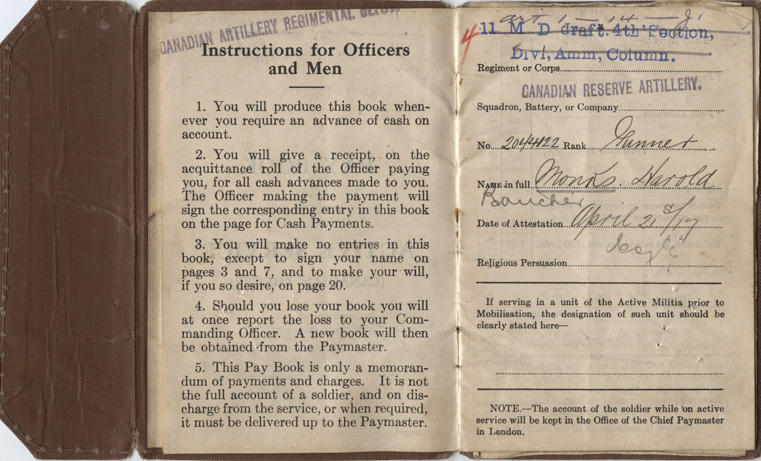 CANADIAN ARTILLERY REGIMENTAL
Instructions for Officers
and Men
1. You will produce this book when-
ever you require an advance of cash on
account.
2. You will give a receipt, on the
acquittance roll of the Officer paying
you, for all cash advances made to you.
The Officer making the payment will
sign the corresponding entry in this book
on the page for Cash Payments.
3. You will make no entries in this
book, except to sign your name on
pages 3 and 7, and to make your will,
if you so desire, on page 20.
4. Should you lose your book you will
at once report the loss to your Com-
manding Officer. A new book will then
be obtained from the Paymaster.
5. This Pay Book is only a memoran-
dum of payments and charges. It is not
the full account of a soldier, and on dis-
charge from the service, or when required,
it must be delivered up to the Paymaster.
4
11 M D draft. 4th Section,
Divl, Amm, Column.
Regiment or Corps
CANADIAN RESERVE ARTILLERY.
Squadron, Battery, or Company
No. 2044122 Rank Gunner
NAME in full Monks Harold
Boucher
Date of Attestation April 21st/17
Religious Persuasion
If serving in a unit of the Active Militia prior to
Mobilisation, the designation of such unit should be
clearly stated here—
NOTE.—The account of the soldier while on active
service will be kept in the Office of the Chief Paymaster
in London.